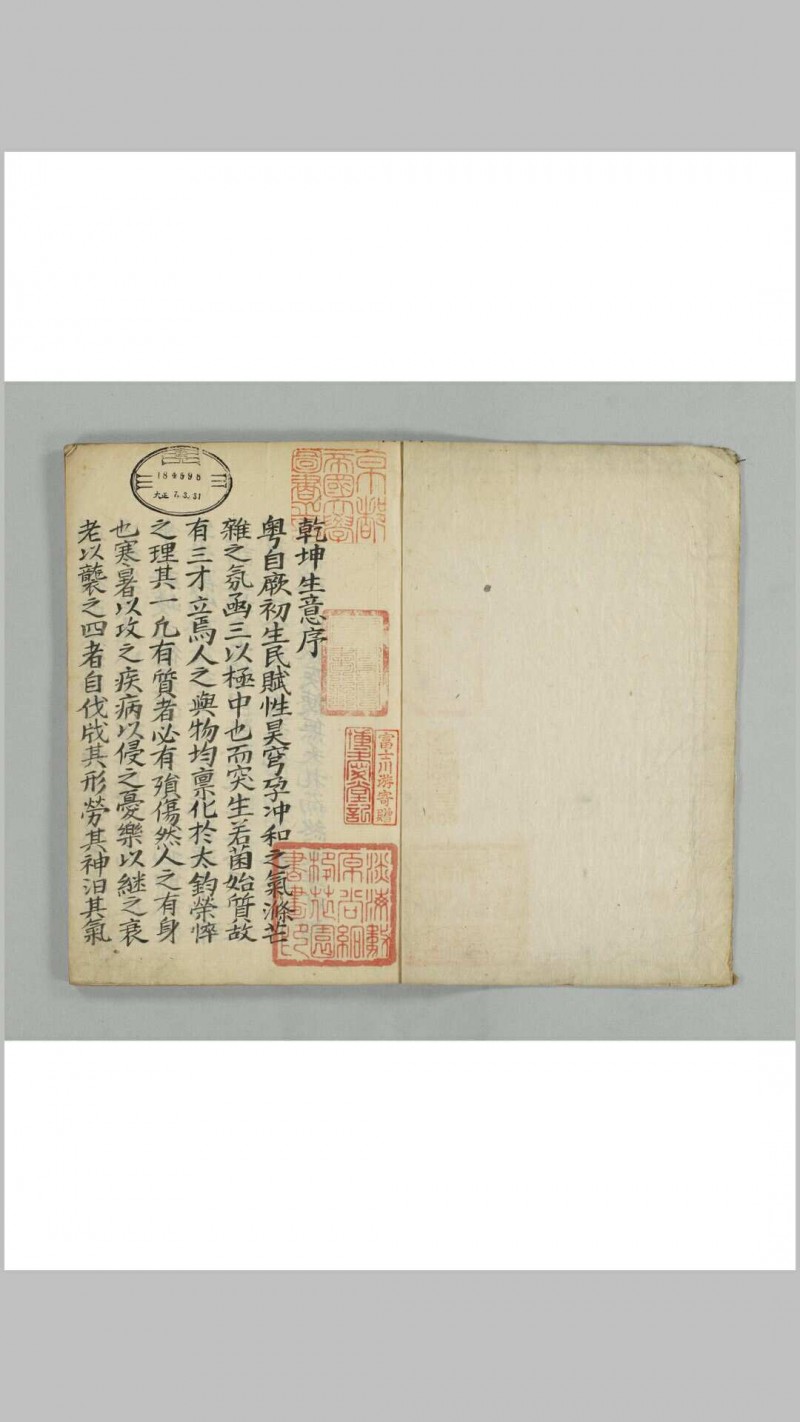 乾坤生意序
粤自厥初生民賦性昊穹孕冲和之氣滌芒
雜之氛函三以極中也而突生若菌始質故
有三才立焉人之與物均禀化於太鈞榮悴
之理其一凢有質者必有殞傷然人之有身
也寒暑以攻之疾病以侵之憂樂以継之衰
老以襲之四者自伐戕其形勞其神汩其氣
京都
帝國大學
圖書
富士川游寄贈
184895
大正 7.3.31